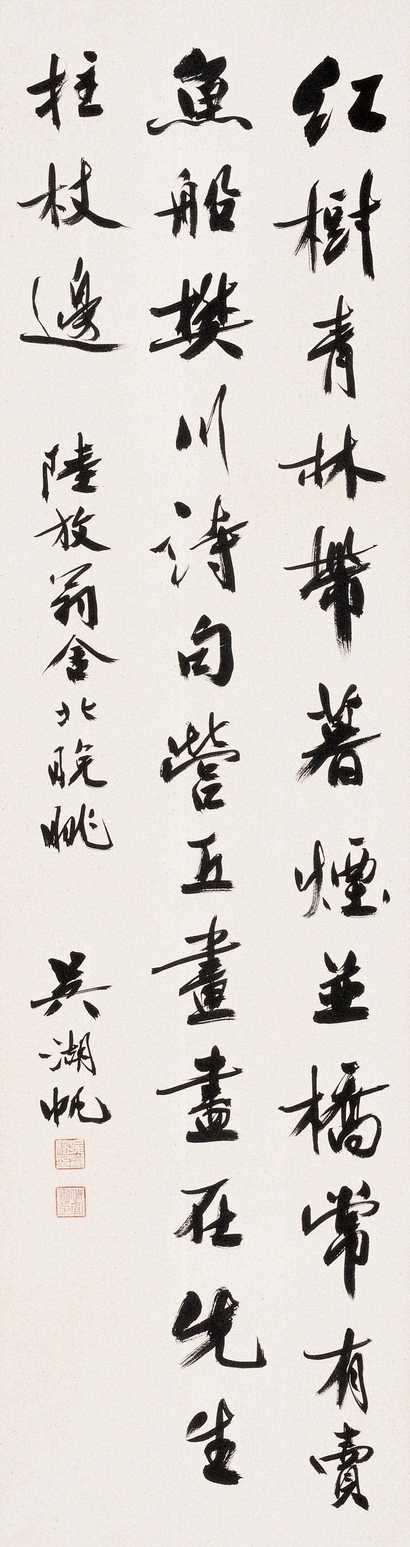 紅樹青林帶暮煙並橋常有賣
魚船樊川詩句營丘畫盡在先生
拄杖邊
陸放翁舍北晚眺
吳湖帆